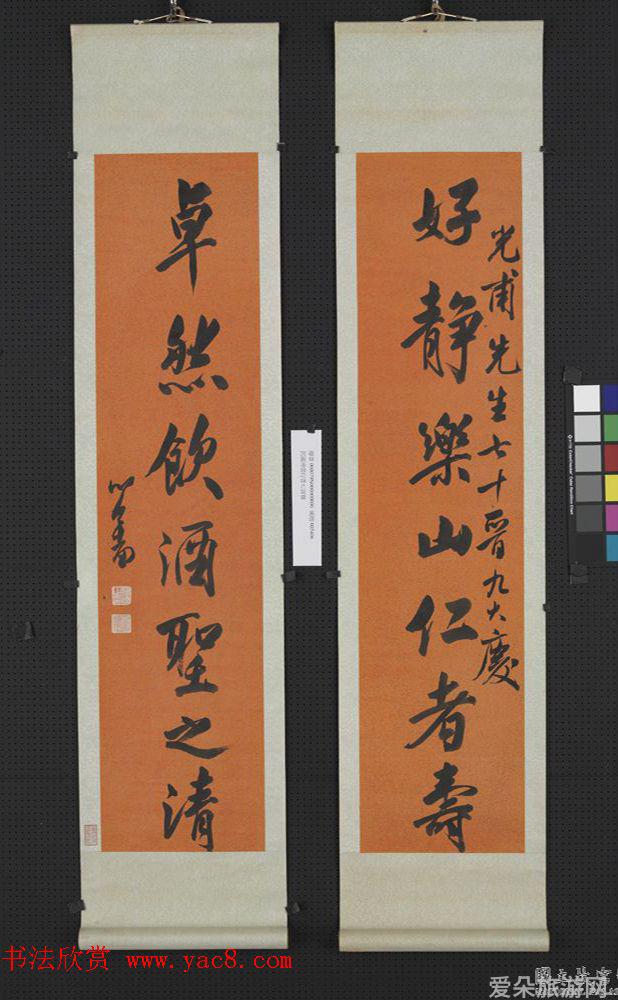 好靜樂山仁者壽
光甫先生七十晉九大慶
卓然飲酒聖之清
心畬
书法欣赏 www.yac8.com
爱朵旅游网